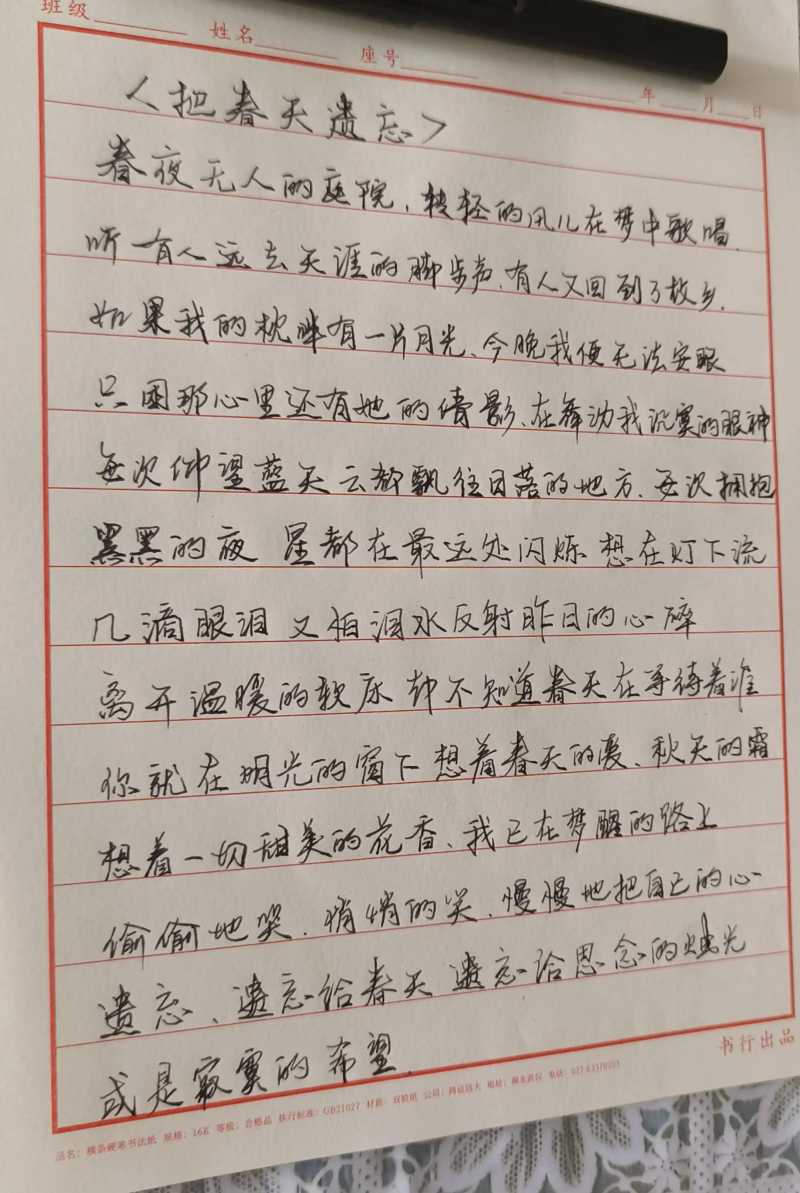 班级 姓名 座号 年 月 日
<把春天遗忘>
春夜无人的庭院,轻轻的风儿在梦中歌唱.
听有人远去天涯的脚步声,有人又回到了故乡.
如果我的枕畔有一片月光、今晚我便无法安眠
只因那心里还有她的倩影、在舞动我沉寞的眼神
每次仰望蓝天云都飘往日落的地方.每次拥抱
黑黑的夜 星都在最远处闪烁 想在灯下流
几滴眼泪 又怕泪水反射昨日的心碎
离开温暖的软床 却不知道春天在等待着谁
你就在明光的窗下 想着春天的暖、秋天的霜
想着一切甜美的花香、我已在梦醒的路上
偷偷地哭.悄悄的笑.慢慢地把自己的心
遗忘、遗忘给春天 遗忘给思念的烛光
或是寂寞的希望.
书行出品
品名:横条硬笔书法纸 规格:16K 等级:合格品 执行标准:GB21027 材质:双胶纸